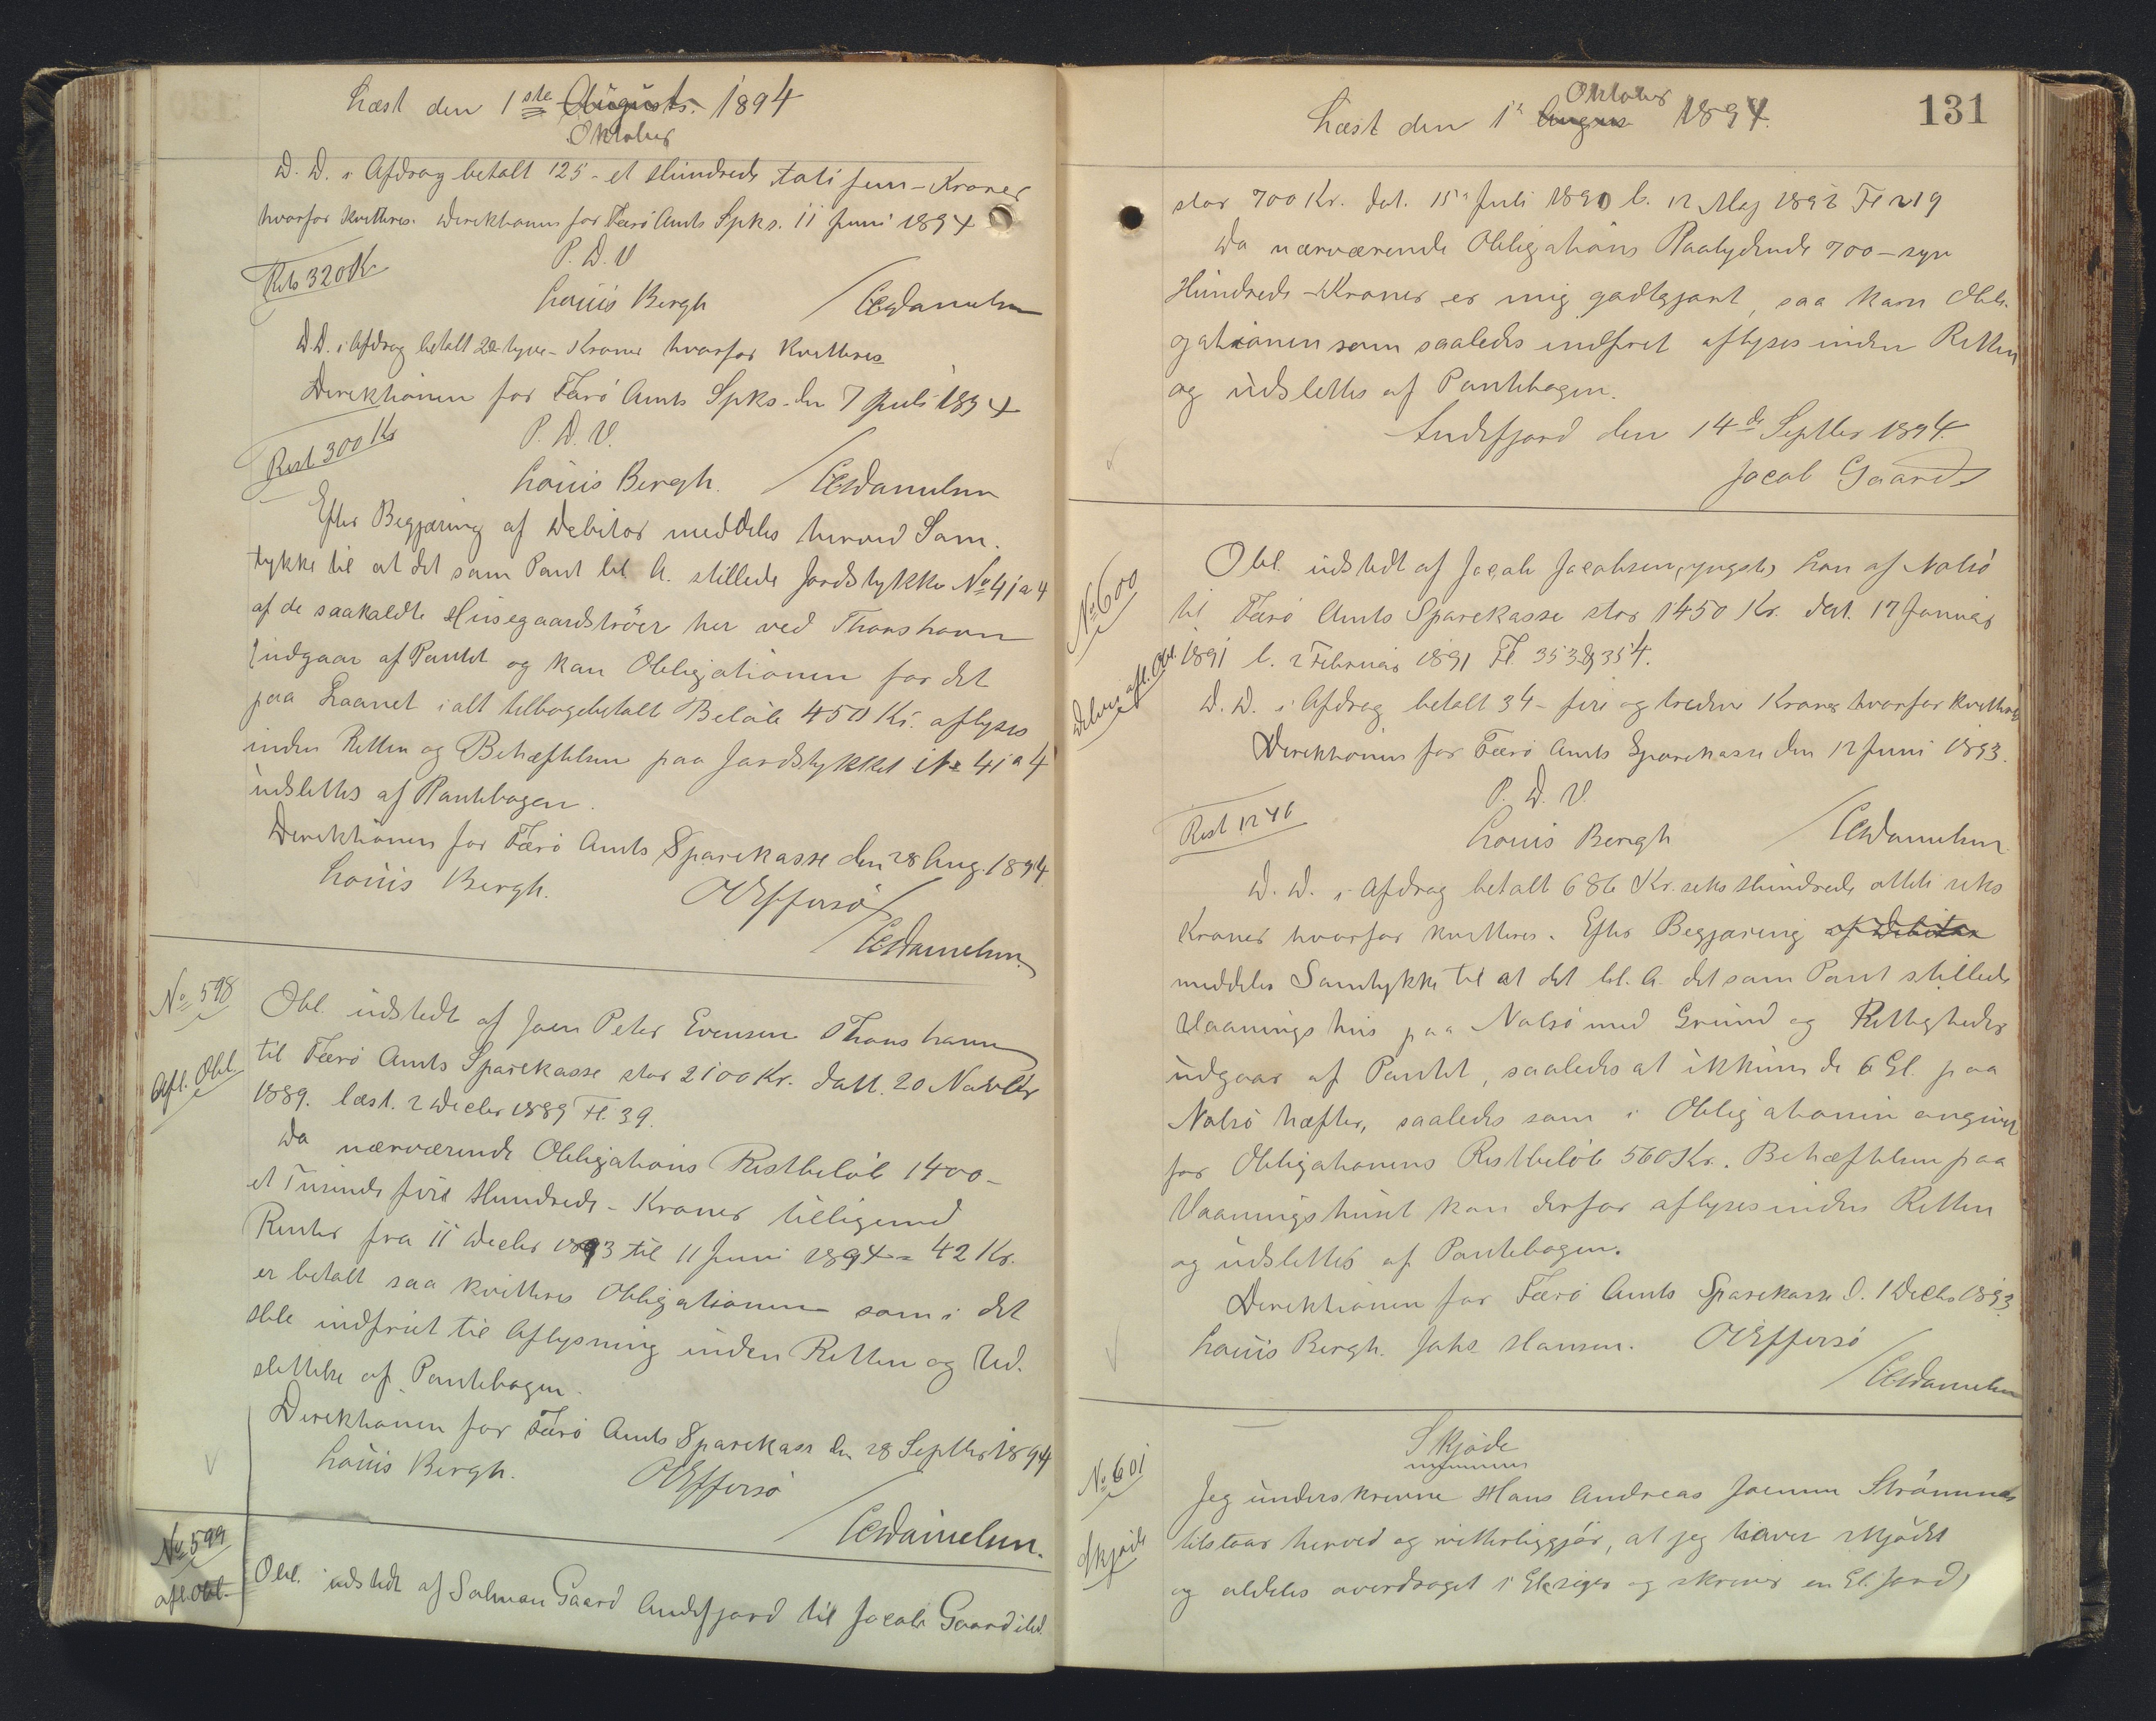 Læst den 1ste August. 1894
Oktober
D. D. i Afdrag betalt 125 - et Hundrede fem - Kroner
hvorfor kvitteres. Direktionen for Færø Amts Spks. 11 Juni 1894
P. D. V
Rest 320 Kr
Louis Bergh /CCDanielsen
D.D. i Afdrag betalt 20 tyve - Kroner hvorfor kvitteres
Direktionen for Færö Amts Spks. den 7 Juli 1894
Rest 300 Kr
P. D. V.
Louis Bergh. /CCDanielsen
Efter Begjæring af Debitor meddeles herved Sam-
tykke til at det som Pant lit. A. stillede Jordstykke No 41 a 4
af de saakaldte Husegaardströer her ved Thorshavn
udgaar af Pantet og kan Obligationen for det
paa Laanet i alt tilbagebetalt Beløb 450 Kr. aflyses
inden Retten og Behæftelsen paa Jordstykket No 41 a 4
udslettes af Pantebogen.
Direktionen for Færö Amts Sparekasse den 28 Aug. 1894
Louis Bergh. OEffersö
/CCDanielsen.
No 598
Afl. Obl.
Obl. udstedt af Joen Peter Evensen Thorshavn
til Færö Amts Sparekasse stor 2100 Kr. datt. 20 Novbr
1889. læst. 2 Decbr 1889 Fl. 39.
Da nærværende Obligations Restbeløb 1400 -
et Tusinde fire Hundrede - Kroner tilligemed
Renter fra 11 Decbr 1893 til 11 Juni 1894 = 42 Kr.
er betalt saa kvitteres Obligationen som i det
Hele indfriet til Aflysning inden Retten og Ud-
slettelse af Pantebogen.
Direktionen for Færö Amts Sparekasse den 28 Septbr 1894
Louis Bergh. OEffersö
/CCDanielsen.
No 599
afl. Obl.
Obl. udstedt af Salmon Gaard Andefjord til Jacob Gaard ibd.
131
Oktober
Læst den 1ste August 1894.
stor 700 Kr. dat. 15de Juli 1890 l. 12 Maj 1892 Fl 219
Da nærværende Obligations Paalydende 700 - syv
Hundrede - Kroner er mig godtgjort, saa kan Obli-
gationen som saaledes indfriet aflyses inden Retten
og udslettes af Pantebogen.
Andefjord den 14de Septbr 1894.
Jacob Gaard
No 600
Delvis afl. Obl.
Obl. udstedt af Jacob Jacobsen, yngste, Søn af Nolsö
til Færö Amts Sparekasse stor 1450 Kr. dat. 17 Januar
1891 l. 2 Februar 1891 Fl. 353 & 354.
D. D. i Afdrag betalt 34 - fire og tredive Kroner hvorfor kvitteres
Direktionen for Færö Amts Sparekasse den 12 Juni 1893.
P. D. V.
Rest 1246
Louis Bergh /CCDanielsen
D. D. i Afdrag betalt 686 Kr. seks Hundrede otteti seks
Kroner hvorfor kvitteres. Efter Begjæring af Debitor
meddeles Samtykke til at det lit. A. det som Pant stillede
Vaaningshus paa Nolsö med Grund og Rettigheder
udgaar af Pantet, saaledes at ikkuns de 6 Gl. paa
Nolsö hæfter, saaledes som i Obligationen angivet
for Obligationens Restbeløb 560 Kr. Behæftelsen paa
Vaaningshuset kan derfor aflyses inden Retten
og udslettes af Pantebogen.
Direktionen for Færö Amts Sparekasse d. 1 Decbr 1893
Louis Bergh. Johs Hansen. OEffersö
/CCDanielsen
No 601
Skjøde
Skjöde
Jeg underskrevne Hans Andreas Joensen Strömnæs
tilstaar herved og vitterliggjör, at jeg haver skjödet
og aldeles overdraget 1 Gl. siger og skriver en Gl. Jord,